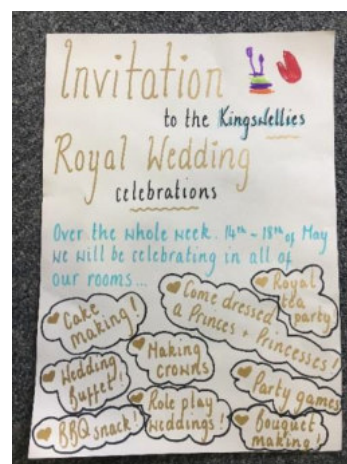 Invitation
to the Kingswellies
Royal Wedding
celebrations
Over the whole week. 14th - 18th of May
we will be celebrating in all of
our rooms...
Royal tea party
Cake making!
Come dressed a Princes + Princesses!
Making crowns
Wedding Buffet!
Party games
BBQ snack!
Role play weddings!
Bouquet making!